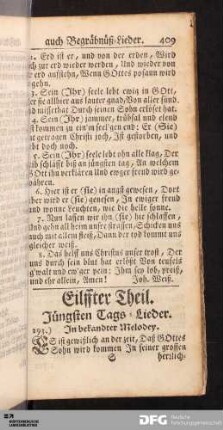 auch Begräbnüß-Lieder. 409
2. Erd ist er, und von der erden, Wird
auch zur erd wieder werden, Und wieder von
erd auffstehn, Wenn GOttes posaun wird
gehn.
3. Sein (Ihr) seele lebt ewig in GOtt,
er sie allhier aus lauter gnad, Von aller sünd
und missethat Durch seinen Sohn erlöset hat.
4. Sein (Ihr) jammer, trübsal und elend
ist kommen zu ein'm seel'gen end: Er (Sie)
hat getragen Christi joch, Ist gestorben, und
lebt doch noch.
5. Sein (Ihr) seele lebt ohn alle klag, Der
leib schläfft bis an jüngsten tag, An welchem
GOtt ihn verklären Und ewger freud wird ge-
währen.
6. Hier ist er (sie) in angst gewesen, Dort
aber wird er (sie) genesen, In ewiger freud
und wonne Leuchten, wie die helle sonne.
7. Nun lassen wir ihn (sie) hie schlaffen,
Und gehn all heim unsre strassen, Schicken uns
auch mit allem fleiß, Dann der tod kommt uns
gleicher weiß.
8. Das helff uns Christus unser trost, Der
uns durch sein blut hat erlößt Von teufels
g'walt und ew'ger pein: Ihm sey lob, preiß,
und ehr allein, Amen! Joh. Weiß.
Eilffter Theil.
Jüngsten Tags-Lieder.
293.) In bekandter Melodey.
ES ist gewißlich an der zeit, Das GOttes
Sohn wird kommen In seiner grossen
herrlich-
DFG